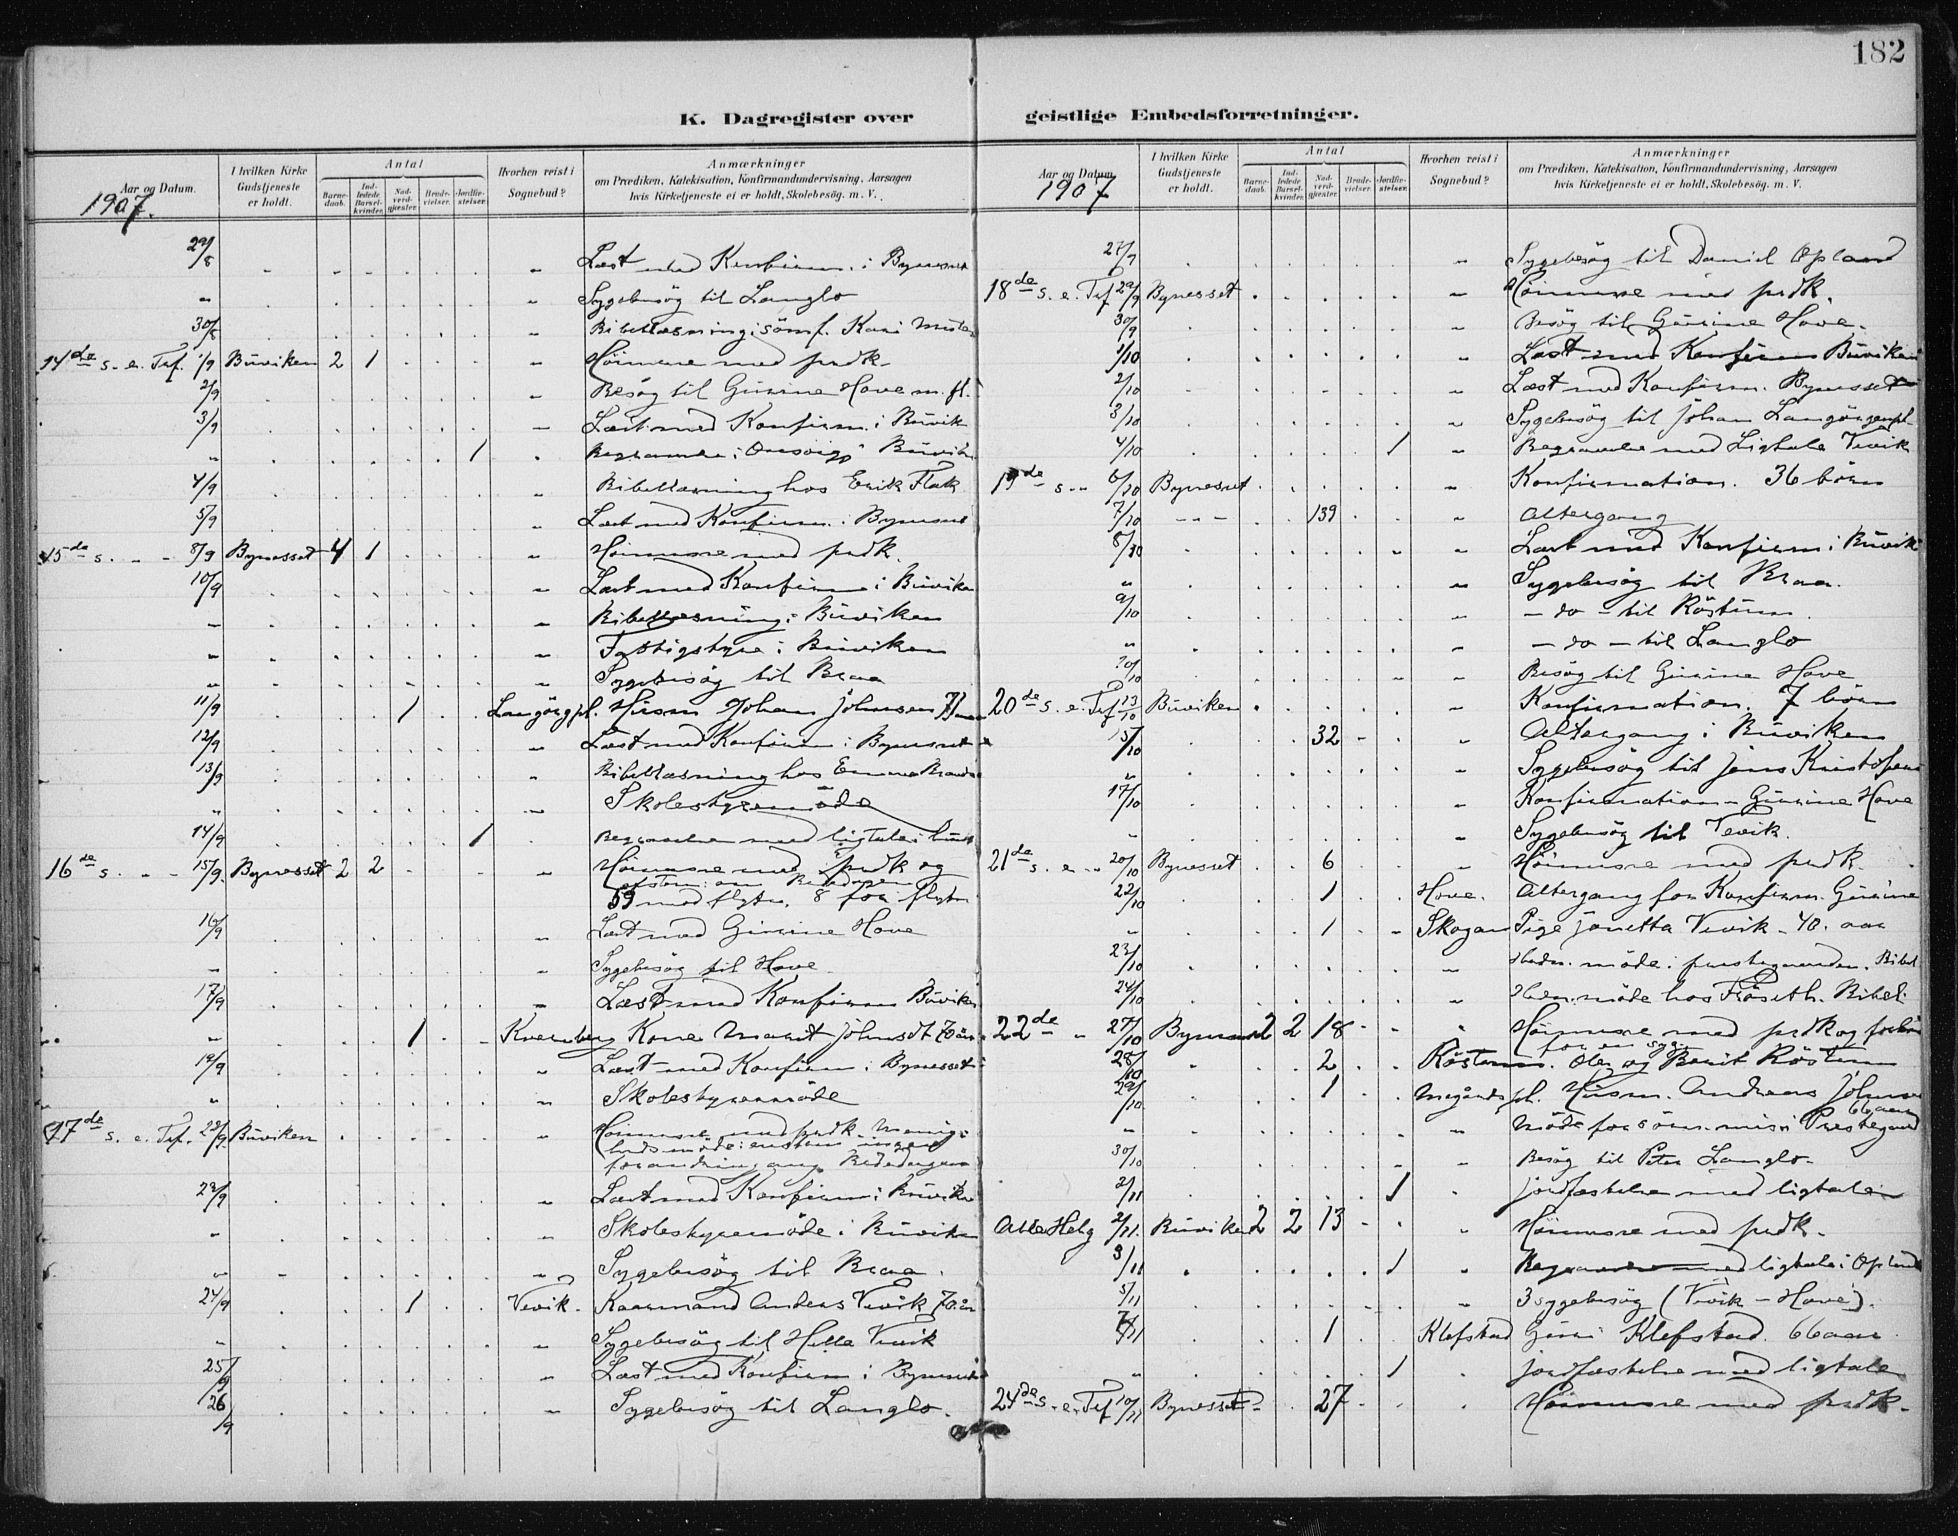 182
K. Dagregister over
Aar og Datum.
I hvilken Kirke Gudstjeneste er holdt.
Antal
Barnedaab.
Indledede Barselkvinder.
Nadverdgjæster.
Brudevielser.
Jordfæstelser.
Hvorhen reist i Sognebud?
Anmærkninger
om Prædiken, Katekisation, Konfirmandundervisning, Aarsagen
hvis Kirketjeneste ei er holdt, Skolebesög. m. V.
1907.
29/8 " Læst med Konfirm. i Bynesset
" " Sygebesög til Langlo
30/8 " Bibellæsning i sömf. Kari
14de s. e. Tref. 1/9 Buviken 2 1 " Höimesse med prdk.
2/9 " Besög til Gurine Hove m. fl.
3/9 " Læst med Konfirm. i Buvik
" 1 " Begravelse i Buviken
4/9 " Bibellæsning hos Erik Flak
5/9 " Læst med Konfirm. i Bynesset
15de s. " " 8/9 Bynesset 4 1 " Höimesse med prdk.
10/9 " Læst med Konfirm i Buviken
" " Bibellæsning i Buviken
" " Fattigstyre i Buviken
" " Sygebesög til Braa
11/9 1 Langörgpl. Husm Johan Johnsen
12/9 " Læst med Konfirm i Bynesset
13/9 " Bibellæsning hos Emma
" " Skolestyremöde
14/9 1 Begravelse med ligtale i
16de s. " " 15/9 Bynesset 2 2 " Höimesse med prdk og
59 mod flytn. 8 for flytn
16/9 " Læst med Gurine Hove
" " Sygebesög til Hove
17/9 " Læst med Konfirm Buviken
" 1 Kvernberg Kone Marit Johnsdt. 70 år
19/9 " Læst med Konfirm i Bynesset
" " Skolestyremöde
17de s. e. Tref. 22/9 Buviken " Höimesse med prdk. Menig-
hedsmöde: enstem ingen
forandring ang. Bededagen
23/9 " Læst med Konfirm i Buviken
" " Skolestyremöde i Buviken
" " Sygebesög til Braa
24/9 1 Vevik. Kaarmand Anders Vevik 70 år
" " Sygebesög til Vevik
25/9 " Læst med Konfirm i Bynesset
26/9 " Sygebesög til Langlo.
geistlige Embedsforretninger.
Aar og Datum.
I hvilken Kirke Gudstjeneste er holdt.
Antal
Barnedaab.
Indledede Barselkvinder.
Nadverdgjæster.
Brudevielser.
Jordfæstelser.
Hvorhen reist i Sognebud?
Anmærkninger
om Prædiken, Katekisation, Konfirmandundervisning, Aarsagen
hvis Kirketjeneste ei er holdt, Skolebesög. m. V.
1907
27/9 " Sygebesög til Daniel Opland
18de s. e. Tref 29/9 Bynesset " Höimesse med prdk.
30/9 " Besög til Gurine Hove.
1/10 " Læst med Konfirm Buviken
2/10 " Læst med Konfirm. Bynesset
3/10 " Sygebesög til Johan Langörgenpl.
4/10 1 " Begravelse med Ligtale Vevik
19de s. " 6/10 Bynesset " Konfirmation. 36 börn
7/10 " 139 " Altergang
8/10 " Læst med Konfirm i Buvik
" " Sygebesög til Braa.
9/10 " - do - til Röstum
" " - do - til Langlo
10/10 " Besög til Gurine Hove
20de s. e. Tref 13/10 Buviken " Konfirmation. 7 börn
15/10 32 " Altergang i Buviken
" " Sygebesög til Jens Kristofersen
17/10 " Konfirmation - Gurine Hove
" " Sygebesög til Vevik.
21de s. e. " 20/10 Bynesset 6 " Höimesse med prdk.
22/10 1 Hove. Altergang for Konfirm. Gurine
" 1 Skogan Pige Jonetta Vevik - 40. aar
23/10 " möde i prestegaarden. Bibel
24/10 " möde hos Fröseth. Bibel
22de " 27/10 Bynesset 2 2 18 " Höimesse med prdk og forbön
for en syg.
28/10 " 2 Röstum. Ole og Berit Röstum
29/10 1 pl. Husm. Andreas Johnsen
66 aar
" " Möde for söm. mis. i Prestegaard
30/10 " Besög til Peter Langlo.
2/11 1 " Jordfæstelse med ligtale
Alle Helg 2/11 Buviken 2 2 13 " Höimesse med prdk.
3/11 1 " Begravelse med ligtale i Opland
5/11 " 3 sygebesög (Vevik - Hove).
7/11 1 Klefstad Guri Klefstad. 66 aar
" 1 " Jordfæstelse med ligtale
24de s. e. Tref 10/11 Bynesset 27 " Höimesse med prdk.